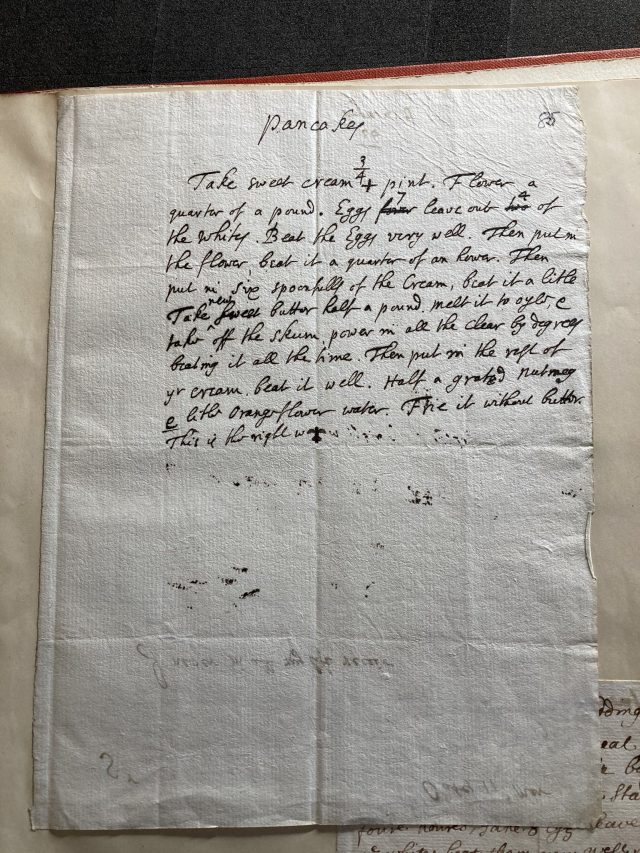 85
Pancakes
Take sweet cream 3/4 pint. Flower a
quarter of a pound. Eggs four 7 leave out two 4 of
the whites. Beat the Eggs very well. Then put in
the flower, beat it a quarter of an hower. Then
put in six spoonfulls of the Cream, beat it a litle
Take new sweet butter half a pound, melt it to oyle, &
take off the skum, power in all the clear by degrees
beating it all the time. Then put in the rest of
yr cream, beat it well. Half a grated nutmeg
& litle Orangeflower water. Frie it without butter.
This is the right way